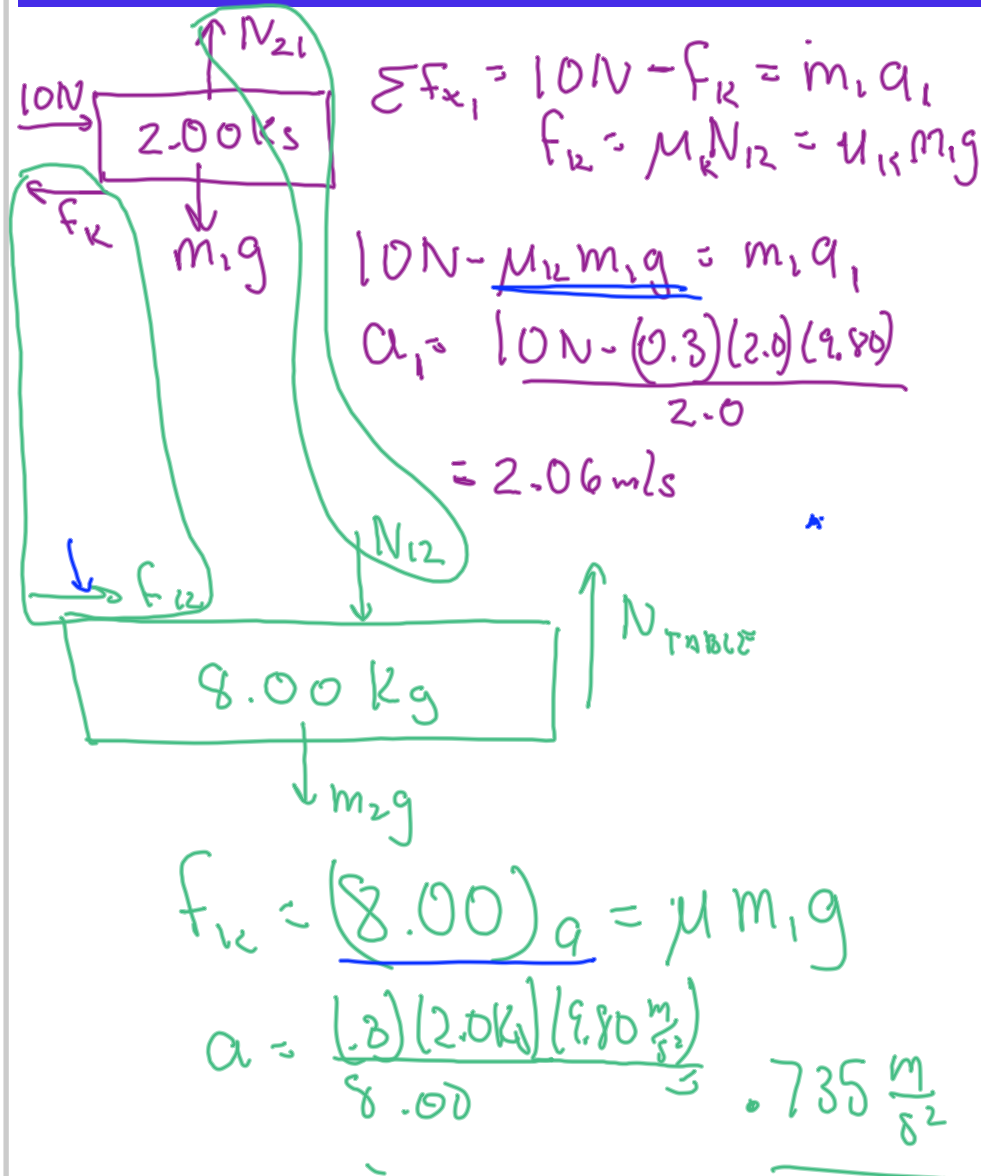 N₂₁
10N
2.00Ks
fₖ
m₁g
Σfₓ₁ = 10N - fₖ = m₁a₁
fₖ = μₖN₁₂ = μₖm₁g
10N - μₖm₁g = m₁a₁
a₁ = 10N - (0.3)(2.0)(9.80)
2.0
= 2.06 m/s
N₁₂
fₖ
N TABLE
8.00 Kg
m₂g
fₖ = (8.00)a = μm₁g
a = (.3)(2.0Kg)(9.80 m/s²)
8.00
= .735 m/s²